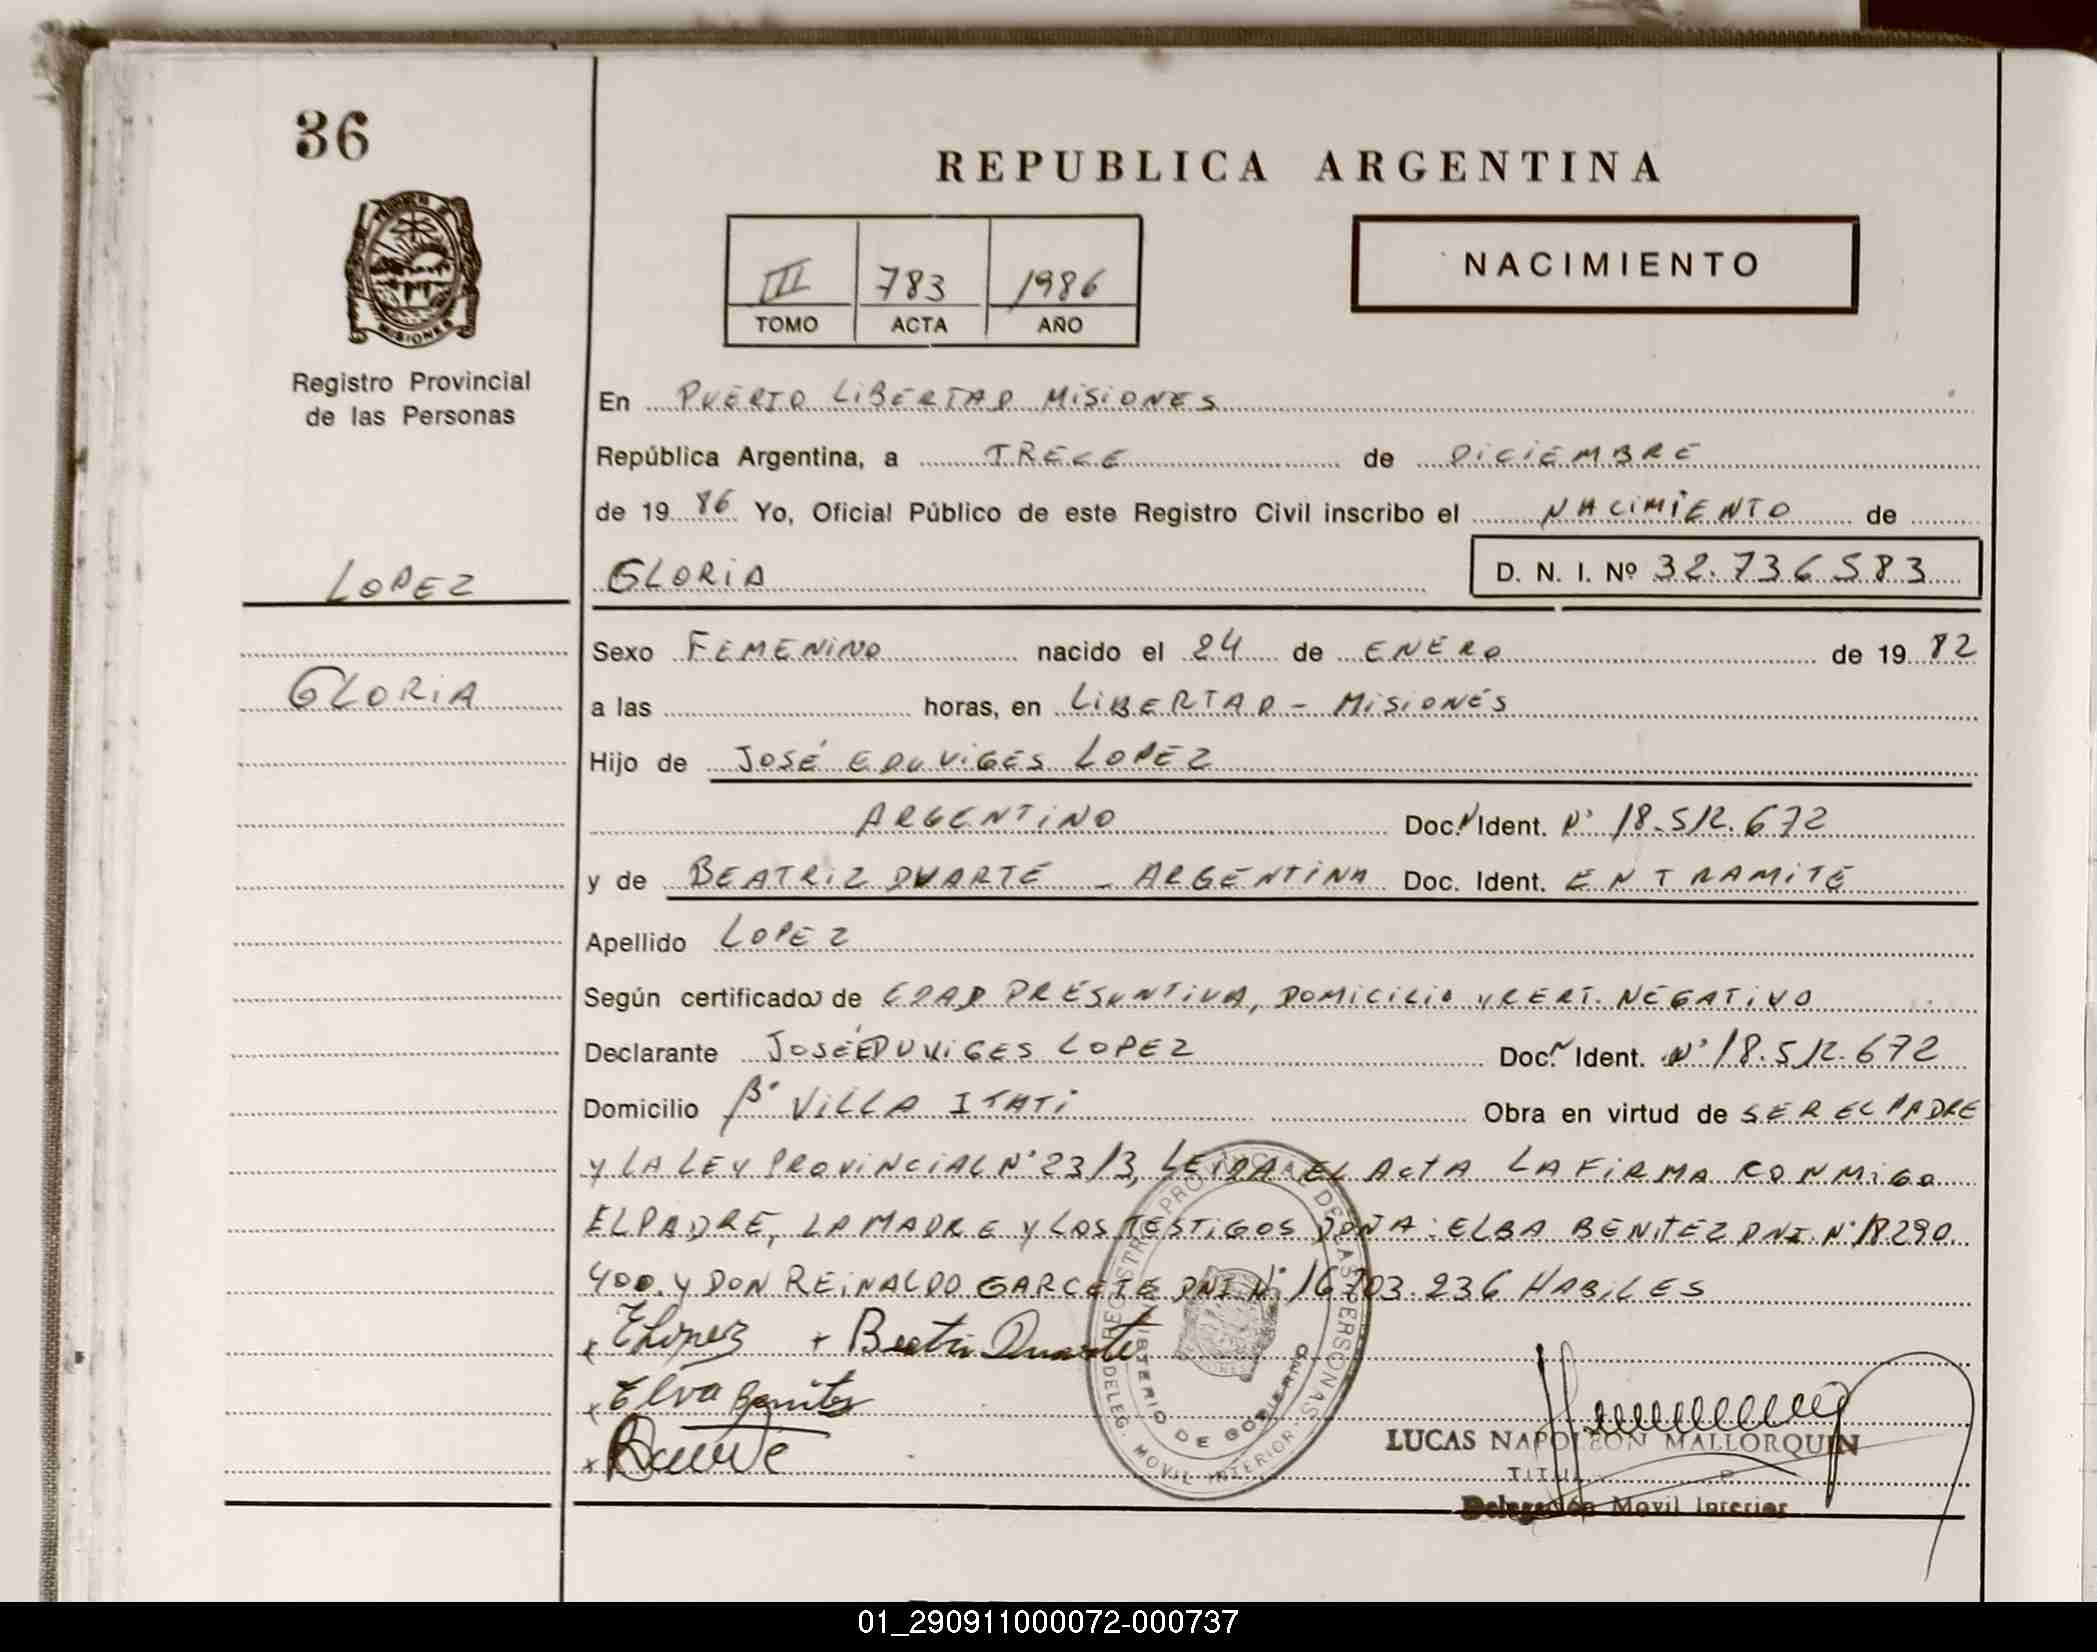 36
REPUBLICA ARGENTINA
III 783 1986
TOMO ACTA AÑO
NACIMIENTO
MISIONES
Registro Provincial
de las Personas
En PUERTO LIBERTAD MISIONES
República Argentina, a TRECE de DICIEMBRE
de 19 86 Yo, Oficial Público de este Registro Civil inscribo el NACIMIENTO de
LOPEZ
GLORIA D. N. I. Nº 32.736583
Sexo FEMENINO nacido el 24 de ENERO de 19 82
GLORIA
a las horas, en LIBERTAD - MISIONES
Hijo de JOSÉ EDUVIGES LOPEZ
ARGENTINO Doc. Ident. Nº 18.512.672
y de BEATRIZ DUARTE - ARGENTINA Doc. Ident. EN TRAMITE
Apellido LOPEZ
Según certificado de EDAD PRESUNTIVA, DOMICILIO Y CERT. NEGATIVO
Declarante JOSÉ EDUVIGES LOPEZ Doc. Ident. Nº 18.512.672
Domicilio Bº VILLA ITATI Obra en virtud de SER EL PADRE
Y LA LEY PROVINCIAL Nº 2313, LEIDA EL ACTA LA FIRMA CONMIGO
EL PADRE, LA MADRE Y LOS TESTIGOS DOÑA: ELBA BENITEZ DNI. Nº 18290
400. Y DON REINALDO GARCETE DNI Nº 16703.236 HABILES
x E Lopez + Beatri Duarte
x Elva Benites
x
REGISTRO PROVINCIAL DE LAS PERSONAS
MINISTERIO DE GOBIERNO
DELEG. MOVIL INTERIOR
LUCAS NAPOLEON MALLORQUIN
Delegación Movil Interior
01_290911000072-000737